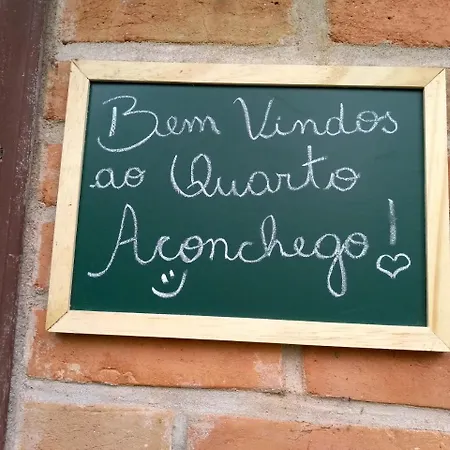 Bem Vindos
ao Quarto
Aconchego!